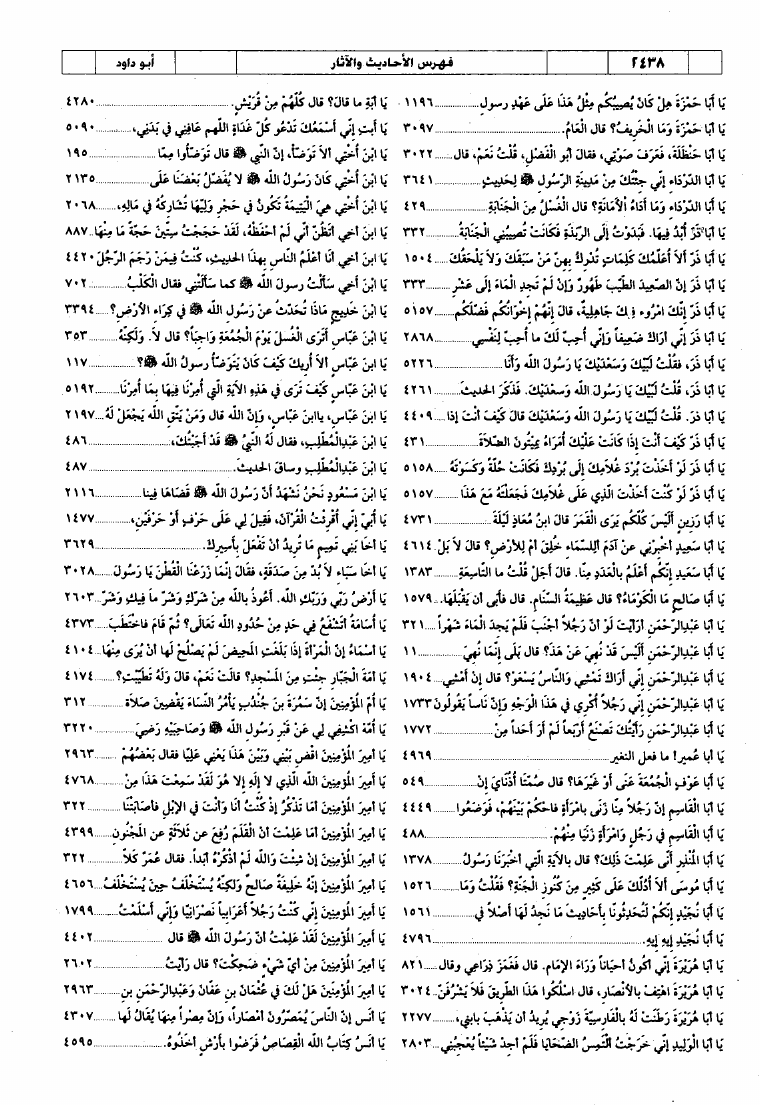 ٢٤٣٨
فهرس الأحاديث والآثار
أبو داود
يَا أبَا حَمْزَةَ هلْ كَانَ يُصِيبُكُم مِثْلُ هَذَا عَلَى عَهْدِ رسولِ ١١٩٦
يَا أبَا حَمْزَةَ وَمَا الْخَرِيفُ؟ قال الْعَامُ. ٣٠٩٧
يَا أبَا حَنْظَلَةَ، فَعَرَفَ صَوْتِي، فقالَ أبُو الْفَضْلِ، قُلْتُ نَعَمْ، قال ٣٠٢٢
يَا أبَا الدَّرْدَاءِ إنِّي جِئْتُكَ مِنْ مَدِينَةِ الرَّسُولِ ﷺ لِحَديثٍ ٣٦٤١
يَا أبَا الدَّرْدَاءِ وَمَا أدَاءُ الأمَانَةِ؟ قال الْغُسْلُ مِنَ الْجَنَابَةِ ٤٢٩
يَا أبَا ذَرّ ابْدُ فِيهَا. فَبَدَوْتُ إلَى الرَّبَذَةِ فَكَانَتْ تُصِيبُنِي الْجَنَابَةُ ٣٣٢
يَا أبَا ذَرّ ألاَ أُعَلِّمُكَ كَلِمَاتٍ تُدْرِكُ بِهِنَّ مَنْ سَبَقَكَ وَلاَ يَلْحَقُكَ ١٥٠٤
يَا أبَا ذَرّ إنّ الصَّعِيدَ الطَّيِّبَ طَهُورٌ وَإنْ لَمْ تَجِدِ الْمَاءَ إلَى عَشْرِ ٣٣٣
يَا أبَا ذَرّ إنّكَ امْرُوء فِيكَ جَاهِلِيةٌ، قالَ إنَّهُمْ إخْوَانُكُم فَضَّلَكُم ٥١٥٧
يَا أبَا ذَرّ إنِّي أرَاكَ ضَعِيفاً وَإنِّي أُحِبّ لَكَ ما أُحِبّ لِنَفْسِي ٢٨٦٨
يَا أبَا ذَرّ، فَقُلْتُ لَبَّيْكَ وَسَعْدَيْكَ يَا رَسُولَ الله وَأنَا ٥٢٢٦
يَا أبَا ذَرّ، قُلْتُ لَبَّيْكَ يا رَسُولَ الله وَسَعْدَيْكَ. فَذَكَرَ الحديثَ ٤٢٦١
يَا أبَا ذَرّ. قُلْتُ لَبَّيْكَ يَا رَسُولَ الله وَسَعْدَيْكَ قالَ كَيْفَ أنْتَ إذَا ٤٤٠٩
يَا أبَا ذَرّ كَيْفَ أنْتَ إذَا كَانَتْ عَلَيْكَ أُمَرَاءُ يُمِيتُونَ الصّلاَةَ ٤٣١
يَا أبَا ذَرّ لَوْ أخَذْتَ بُرْدَ غُلاَمِكَ إلَى بُرْدِكَ فَكَانَتْ حُلَّةً وَكَسَوْتَهُ ٥١٥٨
يَا أبَا ذَرّ لَوْ كُنْتَ أخَذْتَ الّذِي عَلَى غُلاَمِكَ فَجَعَلْتَهُ مَعَ هَذَا ٥١٥٧
يَا أبَا رَزِينٍ ألَيْسَ كُلّكُم يَرَى الْقَمَرَ قالَ ابنُ مُعَاذٍ لَيْلَةَ ٤٧٣١
يَا أبَا سَعِيدٍ أخْبِرْنِي عنْ آدَمَ ألِلسَّمَاءِ خُلِقَ أمْ لِلأرْضِ؟ قالَ لاَ بَلْ ٤٦١٤
يَا أبَا سَعِيدٍ إنَّكُم أعْلَمُ بالْعَدَدِ مِنَّا. قال أجَلْ قُلْتُ ما التّاسِعَةُ ١٣٨٣
يَا أبَا صَالحٍ مَا الْكَوْمَاءُ؟ قال عَظِيمَةُ السَّنَامِ. قال فأبى أن يَقْبَلَهَا. ١٥٧٩
يَا أبَا عَبْدِالرَّحْمنِ أرَأيْتَ لَوْ أنّ رَجُلاً أجْنَبَ فَلَمْ يَجِدِ الْمَاءَ شَهْراً ٣٢١
يَا أبَا عَبْدِالرَّحْمنِ ألَيْسَ قَدْ نُهِيَ عَنْ هَذَا؟ قال بَلَى إنَّمَا نُهِيَ ١١
يَا أبَا عَبْدِالرَّحْمنِ إنِّي أرَاكَ تَمْشِي وَالنّاسُ يَسْعَوْنَ؟ قال إنْ أمْشِي ١٩٠٤
يَا أبَا عَبْدِالرَّحْمنِ إنِّي رَجُلٌ أُكْرِي في هَذَا الْوَجْهِ وَإنّ نَاساً يَقُولُونَ ١٧٣٣
يَا أبَا عَبْدِالرَّحْمنِ رَأيْتُكَ تَصْنَعُ أرْبَعاً لَمْ أرَ أحَداً مِنْ ١٧٧٢
يَا أبَا عُمير! ما فعل النغير ٤٩٦٩
يَا أبَا عَوْفٍ الْجُمُعَةَ عَنَى أوْ غَيْرَهَا؟ قال صُمّتَا أُذُنَايَ إنْ ٥٤٩
يَا أبَا الْقَاسِمِ إنّ رَجُلاً مِنّا زَنَى بامْرَأةٍ فاحْكُمْ بَيْنَهُمْ، فَوَضَعُوا ٤٤٤٩
يَا أبَا الْقَاسِمِ في رَجُلٍ وَامْرَأةٍ زَنَيَا مِنْهُمْ. ٤٨٨
يَا أبَا الْمُنْذِرِ أنَّى عَلِمْتَ ذَلِكَ؟ قال بالآيَةِ الّتي أخْبَرَنَا رَسُولُ ١٣٧٨
يَا أبَا مُوسَى ألاَ أدُلّكَ عَلَى كَنْزٍ مِنْ كُنُوزِ الْجَنّةِ؟ فَقُلْتُ وَمَا ١٥٢٦
يَا أبَا نُجَيْدٍ إنّكُمْ لَتُحَدِّثُونَا بِأحَادِيثَ مَا نَجِدُ لَهَا أصْلاً في ١٥٦١
يَا أبَا نُجَيْدٍ إيهِ إيهِ. ٤٧٩٦
يَا أبَا هُرَيْرَةَ إنِّي أكُونُ أحْيَاناً وَرَاءَ الإمَامِ. قال فَغَمَزَ ذِرَاعِي وقال ٨٢١
يَا أبَا هُرَيْرَةَ اهْتِفْ بالأنْصَارِ، قال اسْلُكُوا هَذَا الطَّرِيقَ فَلاَ يَشْرُفَنّ ٣٠٢٤
يَا أبَا هُرَيْرَةَ رَطَنَتْ لَهُ بِالْفَارِسِيّةِ زَوْجِي يُرِيدُ أن يَذْهَبَ بابْنِي، ٢٢٧٧
يَا أبَا الْوَلِيدِ إنِّي خَرَجْتُ ألْتَمِسُ الضّحَايَا فَلَمْ أجِدْ شَيْئاً يُعْجِبُنِي ٢٨٠٣
يَا أبَةِ ما قالَ؟ قال كُلّهُمْ مِنْ قُرَيْشٍ. ٤٢٨٠
يَا أبتِ إنِّي أسْمَعُكَ تَدْعُو كُلّ غَدَاةٍ اللهم عَافِني في بَدَنِي، ٥٠٩٠
يَا ابنَ أُخْتِي ألاَ تَوَضّأُ، إنّ النّبي ﷺ قال تَوَضّأوا مِمّا ١٩٥
يَا ابنَ أُخْتِي كَانَ رَسُولُ الله ﷺ لاَ يُفَضِّلُ بَعْضَنَا عَلَى ٢١٣٥
يَا ابنَ أُخْتِي هِيَ الْيَتِيمَةُ تَكُونُ في حَجْرِ وَلِيِّهَا تُشَارِكُهُ في مَالِهِ، ٢٠٦٨
يَا ابنَ أخِي أتَظُنّ أنِّي لَمْ أحْفَظْهُ، لَقَدْ حَجَجْتُ سِتِّينَ حَجّةً مَا مِنْهَا. ٨٨٧
يَا ابنَ أخِي أنَا أعْلَمُ النّاسِ بِهذَا الحديثِ، كُنْتُ فِيمَنْ رَجَمَ الرَّجُلَ ٤٤٢٠
يَا ابنَ أخِي سَألْتُ رسولَ الله ﷺ كما سَألْتَنِي فقال الْكَلْبُ ٧٠٢
يَا ابنَ خَدِيجٍ مَاذَا تُحَدِّثُ عنْ رَسولِ الله ﷺ في كِرَاءِ الأرْضِ؟ ٣٣٩٤
يَا ابنَ عَبّاسٍ أتَرَى الْغُسْلَ يَوْمَ الْجُمُعَةِ وَاجِباً؟ قال لاَ. وَلَكِنّهُ ٣٥٣
يَا ابنَ عَبّاسٍ ألاَ أُرِيكَ كَيْفَ كَانَ يَتَوَضّأُ رسولُ الله ﷺ؟ ١١٧
يَا ابنَ عَبّاسٍ كَيْفَ تَرَى في هَذِهِ الآيَةِ الّتي أُمِرْنَا فِيهَا بِمَا أُمِرْنَا ٥١٩٢
يَا ابنَ عَبّاسٍ، ياابنَ عَبّاسٍ، وَإنّ الله قال وَمَنْ يَتّقِ الله يَجْعَلْ لَهُ ٢١٩٧
يَا ابْنَ عَبْدِالْمُطّلِبِ، فقال لَهُ النّبيّ ﷺ قَدْ أجَبْتُكَ، ٤٨٦
يَا ابْنَ عَبْدِالْمُطّلِبِ وساق الحديث. ٤٨٧
يَا ابْنَ مَسْعُودٍ نَحْنُ نَشْهَدُ أنّ رَسُولَ الله ﷺ قَضَاهَا فِينا ٢١١٦
يَا أُبَيّ إنِّي أُقْرِئْتُ الْقُرْآنَ، فَقِيلَ لِي عَلَى حَرْفٍ أوْ حَرْفَيْنِ، ١٤٧٧
يَا أخَا بَنِي تَمِيمٍ مَا تُرِيدُ أنْ تَفْعَلَ بِأسِيرِكَ. ٣٦٢٩
يَا أخَا سَبَاء لاَ بُدّ مِنْ صَدَقَةٍ، فقالَ إنّمَا زَرَعْنَا الْقُطْنَ يَا رَسُولَ ٣٠٢٨
يَا أرْضُ رَبِّي وَرَبّكِ الله. أعُوذُ بالله مِنْ شَرّكِ وَشَرِّ ما فِيكِ وَشَرِّ ٢٦٠٣
يَا أُسَامَةُ أتَشْفَعُ في حَدٍ مِنْ حُدُودِ الله تَعَالَى؟ ثُمّ قَامَ فَاخْتَطَبَ ٤٣٧٣
يَا أسْمَاءُ إنّ الْمَرْأةَ إذَا بَلَغَتِ الْمَحِيضَ لَمْ يَصْلُحْ لَهَا أنْ يُرَى مِنْهَا ٤١٠٤
يَا أمَةَ الْجَبّارِ جِئْتِ مِنَ الْمَسْجِدِ؟ قالَتْ نَعَمْ، قال وَلَهُ تَطَيّبْتِ؟ ٤١٧٤
يَا أُمّ الْمُؤْمِنِينَ إنّ سَمُرَةَ بنَ جُنْدُبٍ يَأْمُرُ النِّسَاءَ يَقْضِينَ صَلاَةَ ٣١٢
يَا أُمّهْ اكْشِفِي لِي عَنْ قَبْرِ رَسُولِ الله ﷺ وَصَاحِبَيْهِ رَضِيَ ٣٢٢٠
يَا أمِيرَ الْمُؤْمِنِينَ اقْضِ بَيْنِي وَبَيْنَ هَذَا يَعْنِي عَلِيّا فقال بَعْضُهُمْ ٢٩٦٣
يَا أمِيرَ الْمُؤْمِنِينَ الله الّذِي لا إلَهَ إلاّ هُوَ لَقَدْ سَمِعْتَ هَذَا مِنْ ٤٧٦٨
يَا أمِيرَ الْمُؤْمِنِينَ أمَا تَذْكُرُ إذْ كُنْتُ أنَا وَأنْتَ في الإبِلِ فأصَابَتْنَا ٣٢٢
يَا أمِيرَ الْمُؤْمِنِينَ أمَا عَلِمْتَ أنّ الْقَلَمَ رُفِعَ عن ثَلاَثَةٍ عن الْمَجْنُونِ ٤٣٩٩
يَا أمِيرَ الْمُؤْمِنِينَ إنْ شِئْتَ وَالله لَمْ أذْكُرْهُ أبَداً. فقال عُمَرُ كَلاّ ٣٢٢
يَا أمِيرَ الْمُؤْمِنِينَ إنّهُ خَلِيفَةٌ صَالحٌ وَلَكِنّهُ يُسْتَخْلَفُ حِينَ يُسْتَخْلَفُ ٤٦٥٦
يَا أمِيرَ الْمُؤْمِنِينَ إنِّي كُنْتُ رَجُلاً أعْرَابِياً نَصْرَانِيّا وَإنِّي أسْلَمْتُ ١٧٩٩
يَا أمِيرَ الْمُؤْمِنِينَ لَقَدْ عَلِمْتَ أنّ رَسُولَ الله ﷺ قال ٤٤٠٢
يَا أمِيرَ الْمُؤْمِنِينَ مِنْ أيّ شَيْءٍ ضَحِكْتَ؟ قال رَأيْتُ ٢٦٠٢
يَا أمِيرَ الْمُؤْمِنِينَ هَلْ لَكَ في عُثْمَانَ بنِ عَفّانَ وَعَبْدِالرَّحْمنِ بنِ ٢٩٦٣
يَا أنَسُ إنّ النّاسَ يُمَصِّرُونَ أمْصَاراً، وَإنّ مِصْراً مِنْهَا يُقَالُ لَهَا ٤٣٠٧
يَا أنَسُ كِتَابُ الله الْقِصَاصُ فَرَضُوا بأرْشٍ أخَذُوهُ. ٤٥٩٥